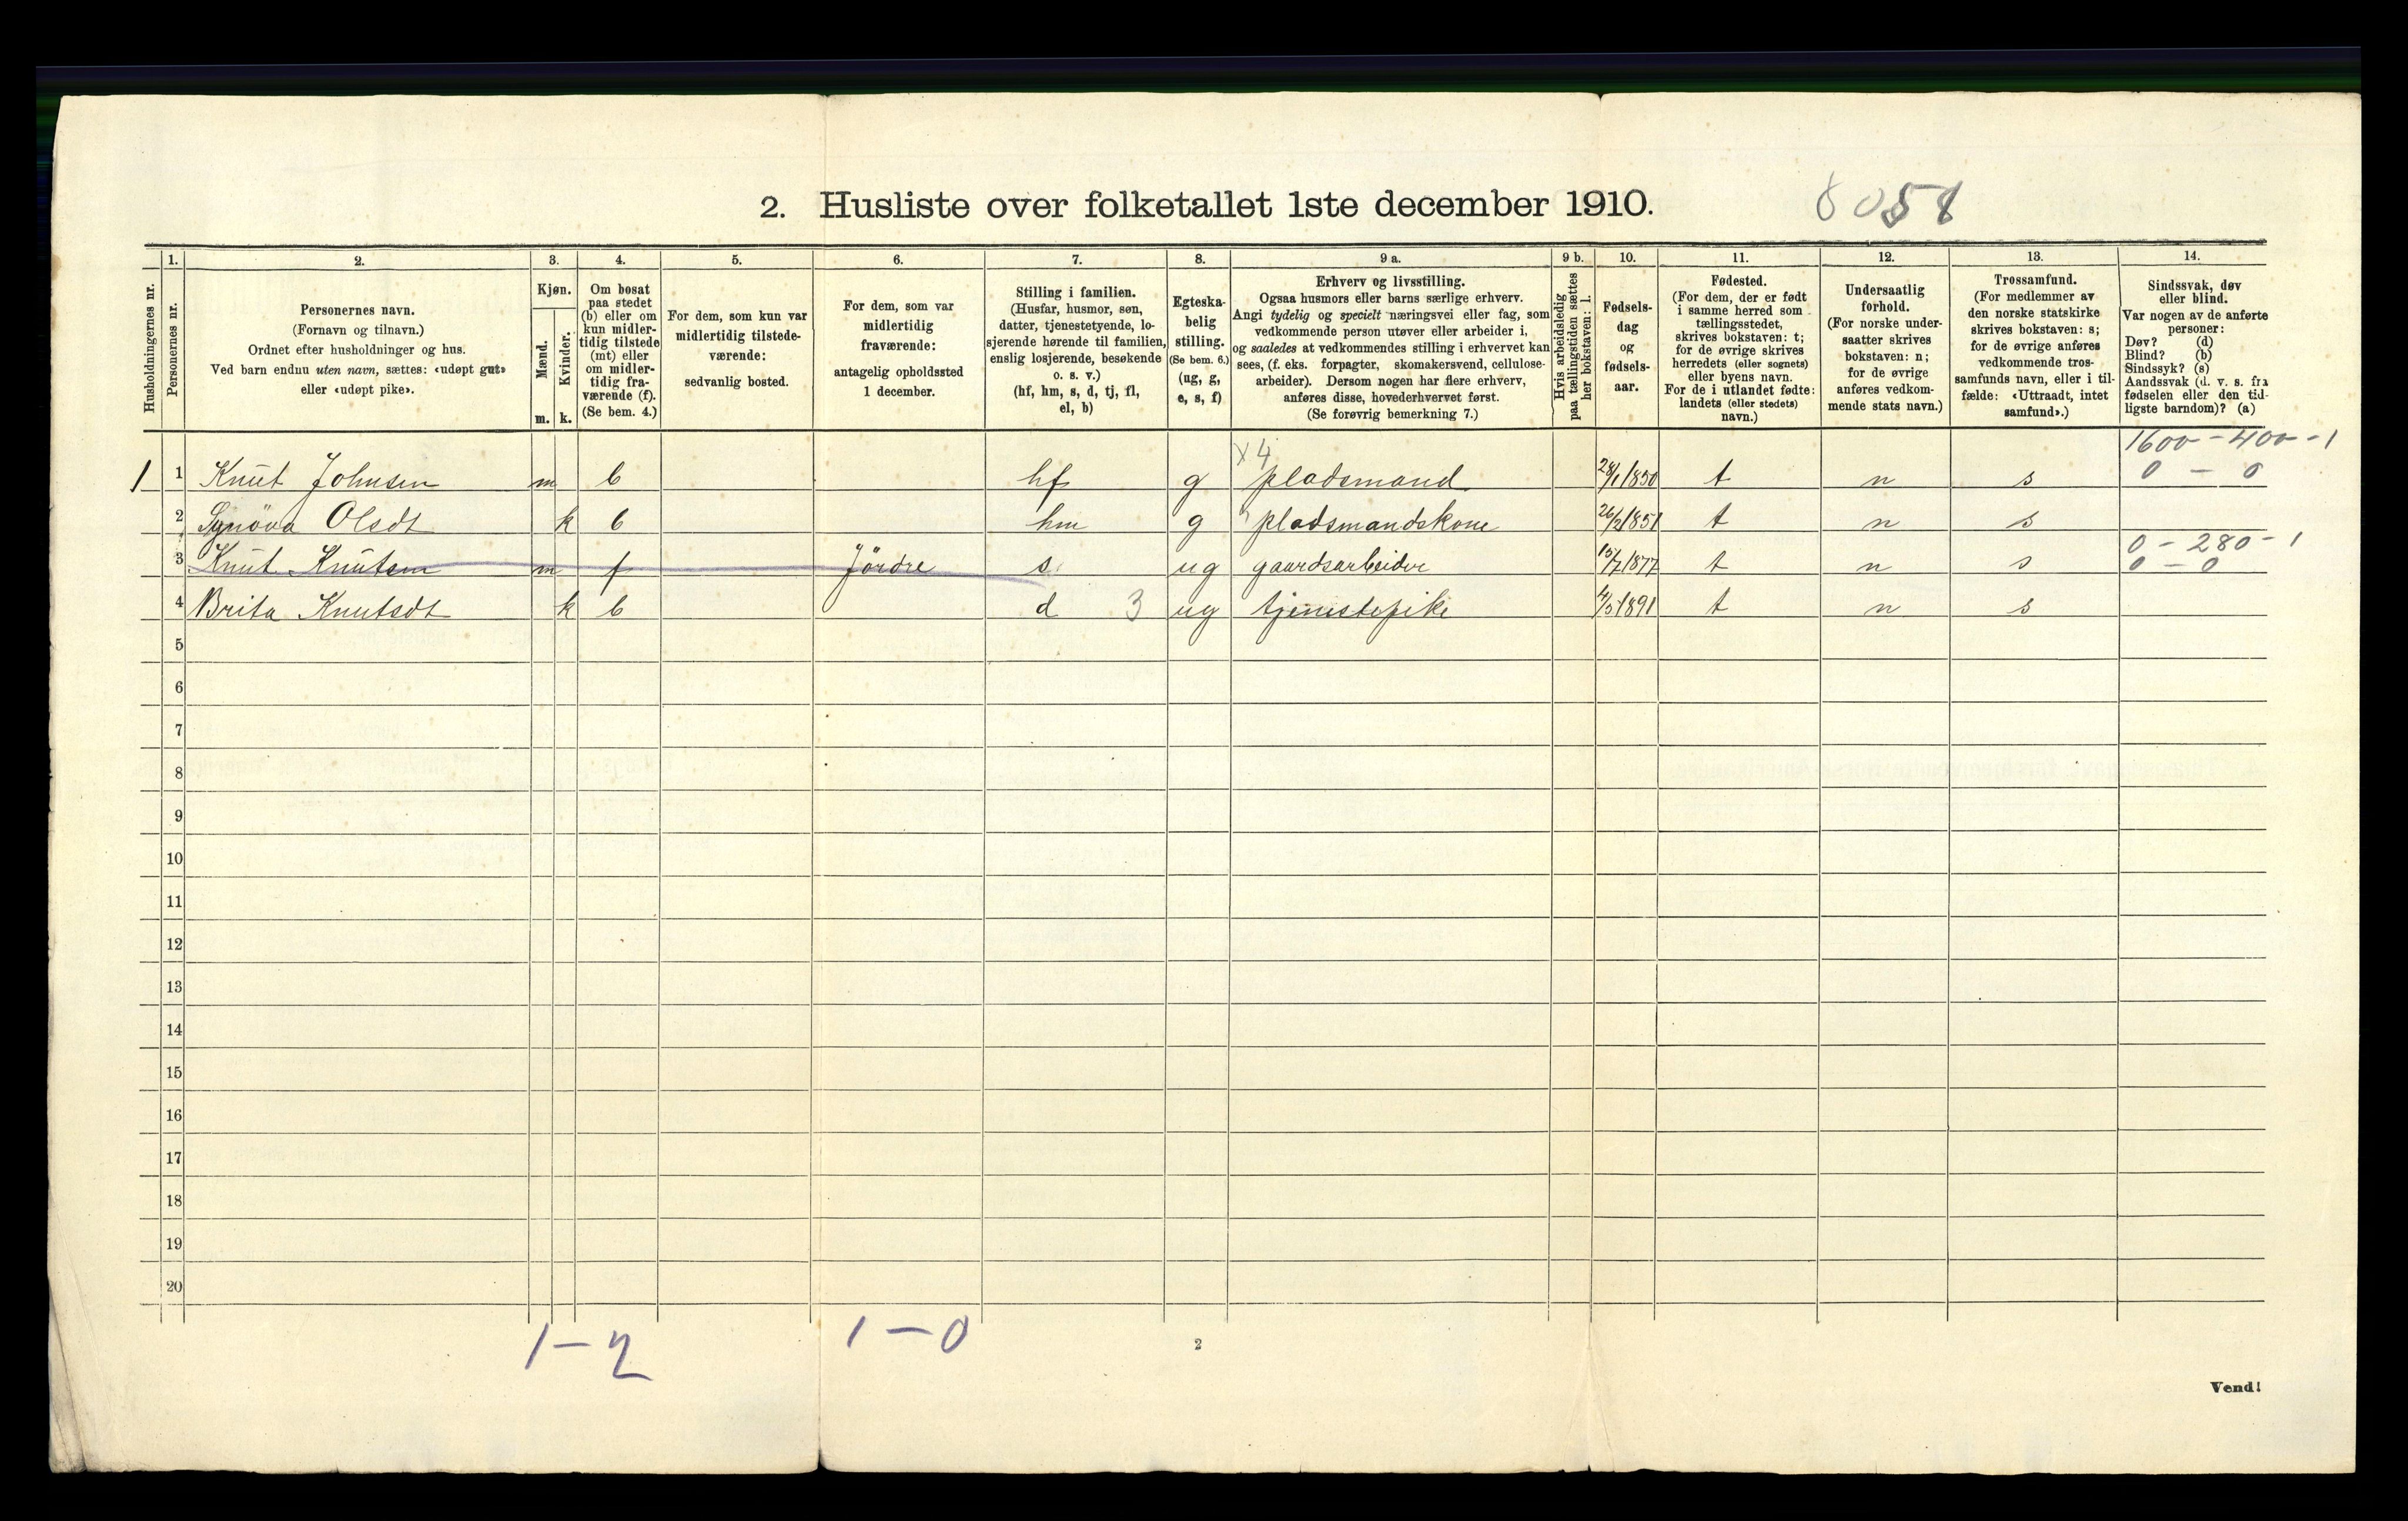 2. Husliste over folketallet 1ste december 1910.
Husholdningernes nr.
1.
Personernes nr.
2.
Personernes navn.
(Fornavn og tilnavn.)
Ordnet efter husholdninger og hus.
Ved barn endnu uten navn, sættes: «udøpt gut»
eller «udøpt pike».
3.
Kjøn.
Mænd.
m.
Kvinder.
k.
4.
Om bosat
paa stedet
(b) eller om
kun midler-
tidig tilstede
(mt) eller
om midler-
tidig fra-
værende (f).
(Se bem. 4.)
5.
For dem, som kun var
midlertidig tilstede-
værende:
sedvanlig bosted.
6.
For dem, som var
midlertidig
fraværende:
antagelig opholdssted
1 december.
7.
Stilling i familien.
(Husfar, husmor, søn,
datter, tjenestetyende, lo-
sjerende hørende til familien,
enslig losjerende, besøkende
o. s. v.)
(hf, hm, s, d, tj, fl,
el, b)
8.
Egteska-
belig
stilling.
(Se bem. 6.)
(ug, g,
e, s, f)
9 a.
Erhverv og livsstilling.
Ogsaa husmors eller barns særlige erhverv.
Angi tydelig og specielt næringsvei eller fag, som
vedkommende person utøver eller arbeider i,
og saaledes at vedkommendes stilling i erhvervet kan
sees, (f. eks. forpagter, skomakersvend, cellulose-
arbeider). Dersom nogen har flere erhverv,
anføres disse, hovederhvervet først.
(Se forøvrig bemerkning 7.)
9 b.
Hvis arbeidsledig
paa tællingstiden sættes
her bokstaven: l.
10.
Fødsels-
dag
og
fødsels-
aar.
11.
Fødested.
(For dem, der er født
i samme herred som
tællingsstedet,
skrives bokstaven: t;
for de øvrige skrives
herredets (eller sognets)
eller byens navn.
For de i utlandet fødte:
landets (eller stedets)
navn.)
12.
Undersaatlig
forhold.
(For norske under-
saatter skrives
bokstaven: n;
for de øvrige
anføres vedkom-
mende stats navn.)
13.
Trossamfund.
(For medlemmer av
den norske statskirke
skrives bokstaven: s;
for de øvrige anføres
vedkommende tros-
samfunds navn, eller i til-
fælde: «Uttraadt, intet
samfund».)
14.
Sindssvak, døv
eller blind.
Var nogen av de anførte
personer:
Døv? (d)
Blind? (b)
Sindssyk? (s)
Aandssvak (d. v. s. fra
fødselen eller den tid-
ligste barndom)? (a)
x 4 1600 - 400 - 1
1 1 Knut Johnsen m b hf g pladsmand 28/1 1850 t n s 0 - 0
2 Synöva Olsdt k b hm g pladsmandskone 26/2 1851 t n s
0 - 280 - 1
3 Knut Knutsen m f Jördre s ug gaardsarbeider 15/7 1877 t n s 0 - 0
4 Brita Knutsdt k b d 3 ug tjenestepike 4/5 1891 t n s
5
6
7
8
9
10
11
12
13
14
15
16
17
18
19
20
1 - 2 1 - 0
2
Vend!